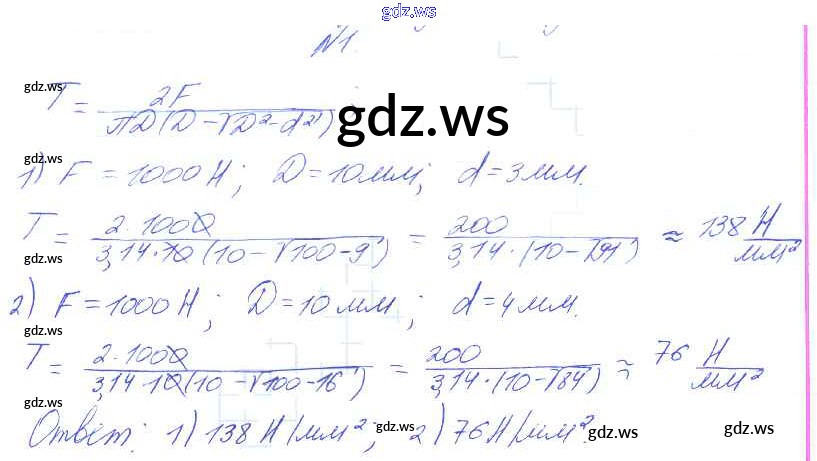 gdz.ws
№1.
gdz.ws
T = 2F / πD(D - √D² - d²)
gdz.ws
gdz.ws
1) F = 1000 Н; D = 10 мм; d = 3 мм.
T = 2·1000 / 3,14·10(10 - √100-9) = 200 / 3,14·(10 - √91) ≈ 138 Н/мм²
gdz.ws
2) F = 1000 Н; D = 10 мм; d = 4 мм.
gdz.ws
T = 2·1000 / 3,14·10(10 - √100-16) = 200 / 3,14·(10 - √84) ≈ 76 Н/мм²
gdz.ws
Ответ: 1) 138 Н/мм²; 2) 76 Н/мм².
gdz.ws
gdz.ws
gdz.ws